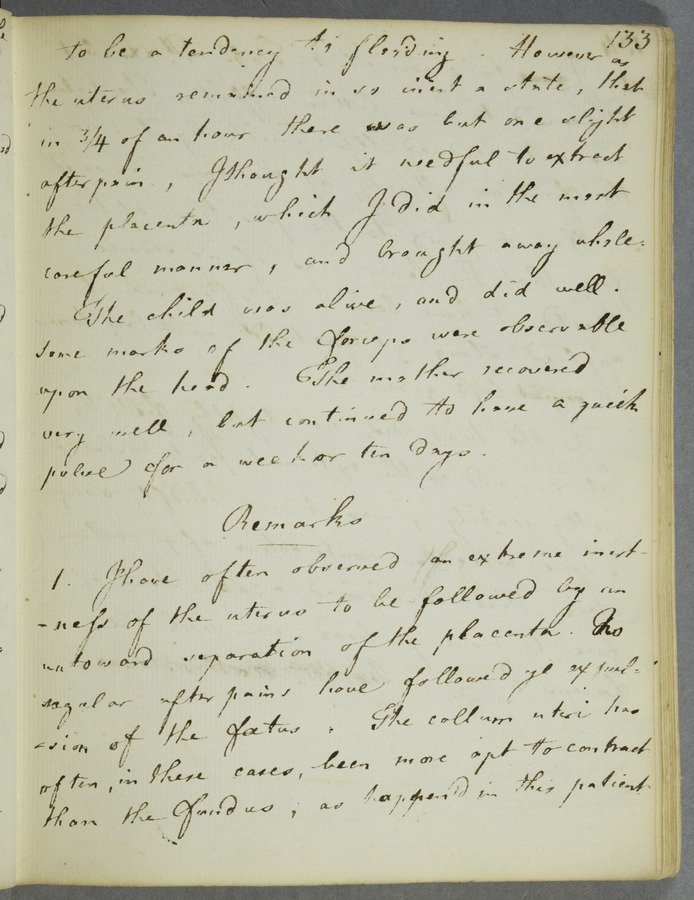 133
to be a tendency to flooding. However as
the uterus remained in so inert a state, that
in 3/4 of an hour there was but one slight
afterpain, I thought it needful to extract
the placenta, which I did in the most
careful manner, and brought away whole.
The child was alive, and did well.
Some marks of the forceps were observable
upon the head. The mother recovered
very well, but continued to have a quick
pulse for a week or ten days.
Remarks
1. I have often observed an extreme inert-
-ness of the uterus to be followed by an
untoward separation of the placenta. No
regular after pains have followed ye expul-
-sion of the foetus. The collum uteri has
often, in these cases, been more apt to contract
than the fundus; as happen'd in this patient